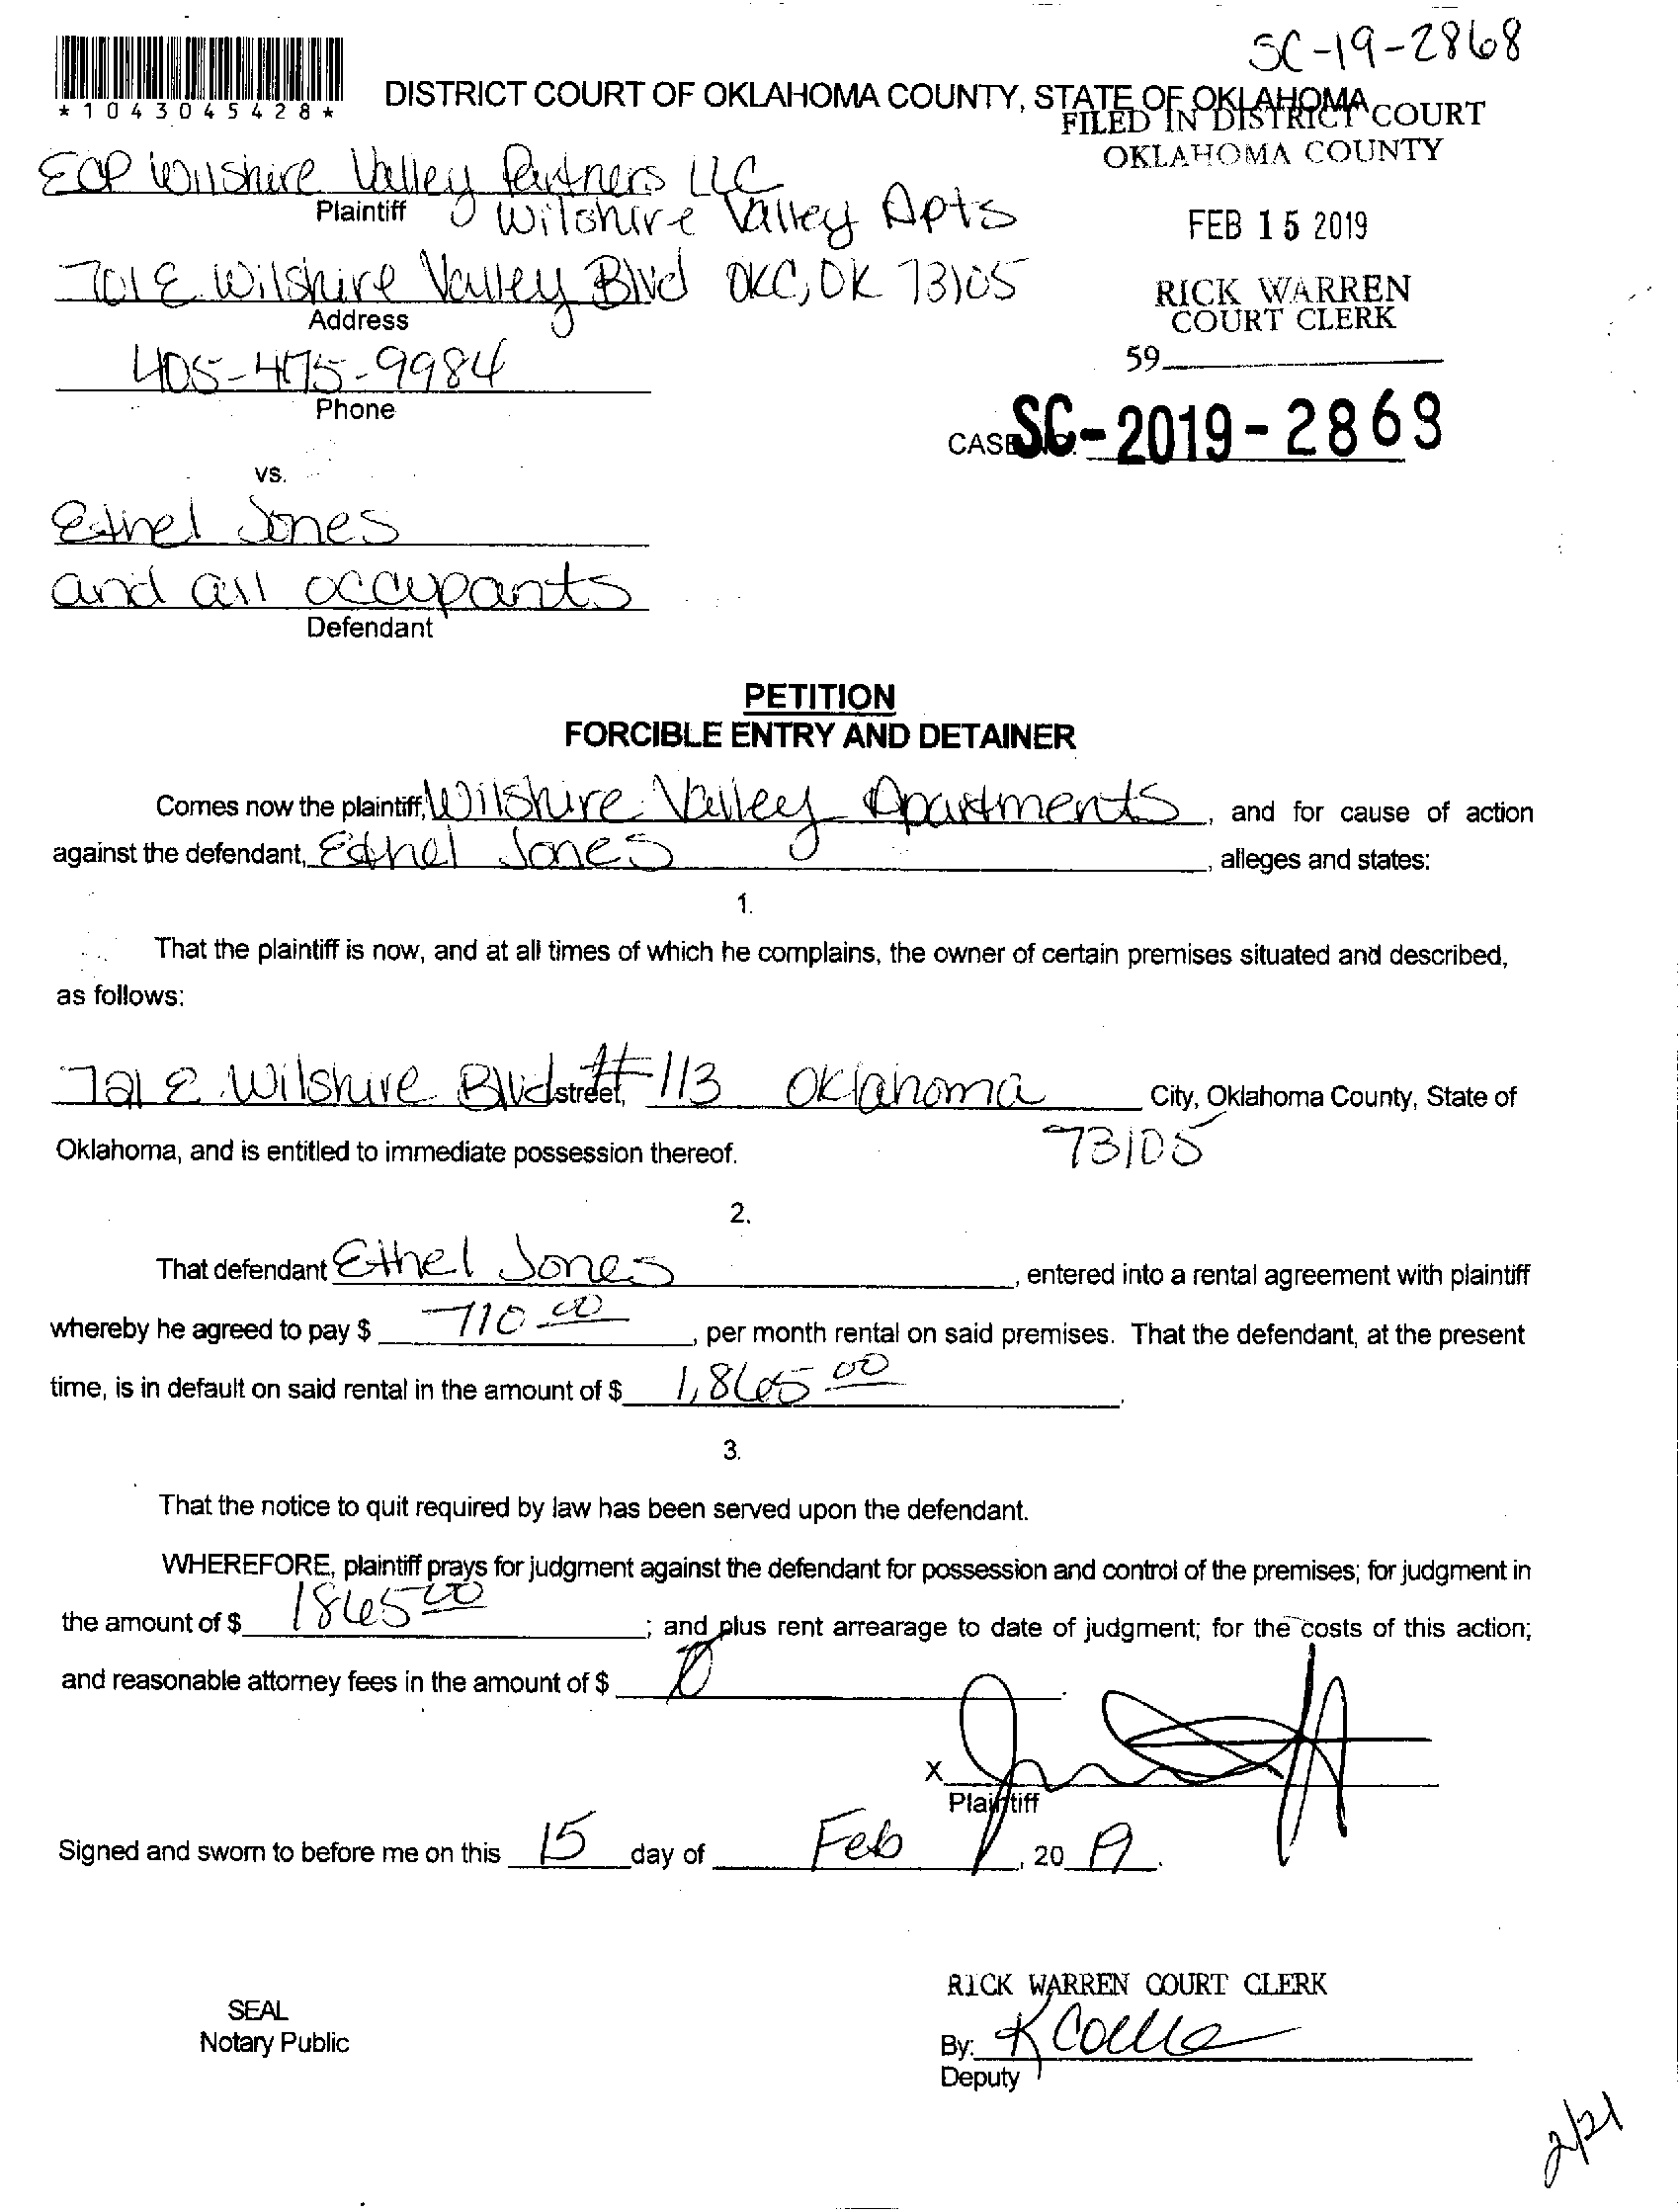 SC-19-2868
*1043045428*
DISTRICT COURT OF OKLAHOMA COUNTY, STATE OF OKLAHOMA
FILED IN DISTRICT COURT
OKLAHOMA COUNTY
ECP Wilshire Valley Partners LLC
Plaintiff Wilshire Valley Apts
FEB 15 2019
701 E Wilshire Valley Blvd OKC, OK 73105
Address
RICK WARREN
COURT CLERK
405-475-9984
Phone
59
CASE SC-2019-2868
vs.
Ethel Jones
and all occupants
Defendant
PETITION
FORCIBLE ENTRY AND DETAINER
Comes now the plaintiff, Wilshire Valley Apartments, and for cause of action
against the defendant, Ethel Jones, alleges and states:
1.
That the plaintiff is now, and at all times of which he complains, the owner of certain premises situated and described,
as follows:
721 E Wilshire Blvd street, #113 Oklahoma City, Oklahoma County, State of
73105
Oklahoma, and is entitled to immediate possession thereof.
2.
That defendant Ethel Jones, entered into a rental agreement with plaintiff
whereby he agreed to pay $ 710.00, per month rental on said premises. That the defendant, at the present
time, is in default on said rental in the amount of $ 1,865 00.
3.
That the notice to quit required by law has been served upon the defendant.
WHEREFORE, plaintiff prays for judgment against the defendant for possession and control of the premises; for judgment in
the amount of $ 1865 00; and plus rent arrearage to date of judgment; for the costs of this action;
and reasonable attorney fees in the amount of $ 0
X
Plaintiff
Signed and sworn to before me on this 15 day of Feb, 20 19.
RICK WARREN COURT CLERK
SEAL
Notary Public
By:
Deputy
2/21